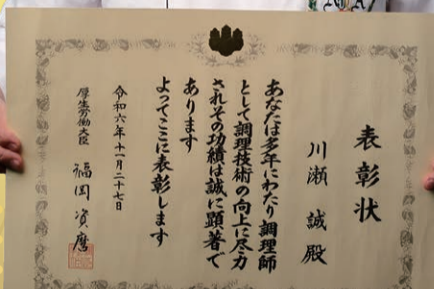 表彰状
川瀬 誠 殿
あなたは多年にわたり調理師
として調理技術の向上に尽力
されその功績は誠に顕著で
あります
よってここに表彰します
令和六年十一月二十七日
厚生労働大臣 福岡資麿